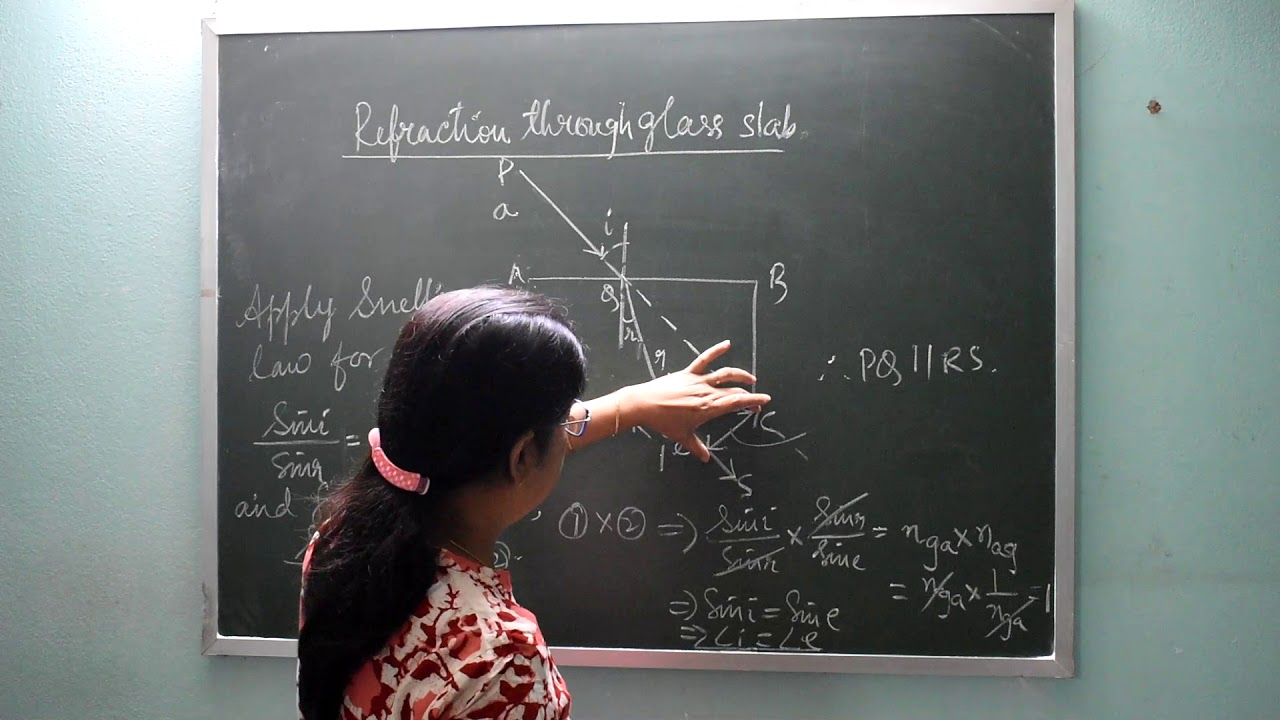 Refraction through glass slab
P
a
i
A B
Q
r
r
Apply Snell's
law for
∴ PQ || RS.
sin i / sin r =
e
S
and
① × ② ⇒ sin i / sin r × sin r / sin e = nga × nag
= nga × 1/nga = 1
⇒ sin i = sin e
⇒ ∠i = ∠e